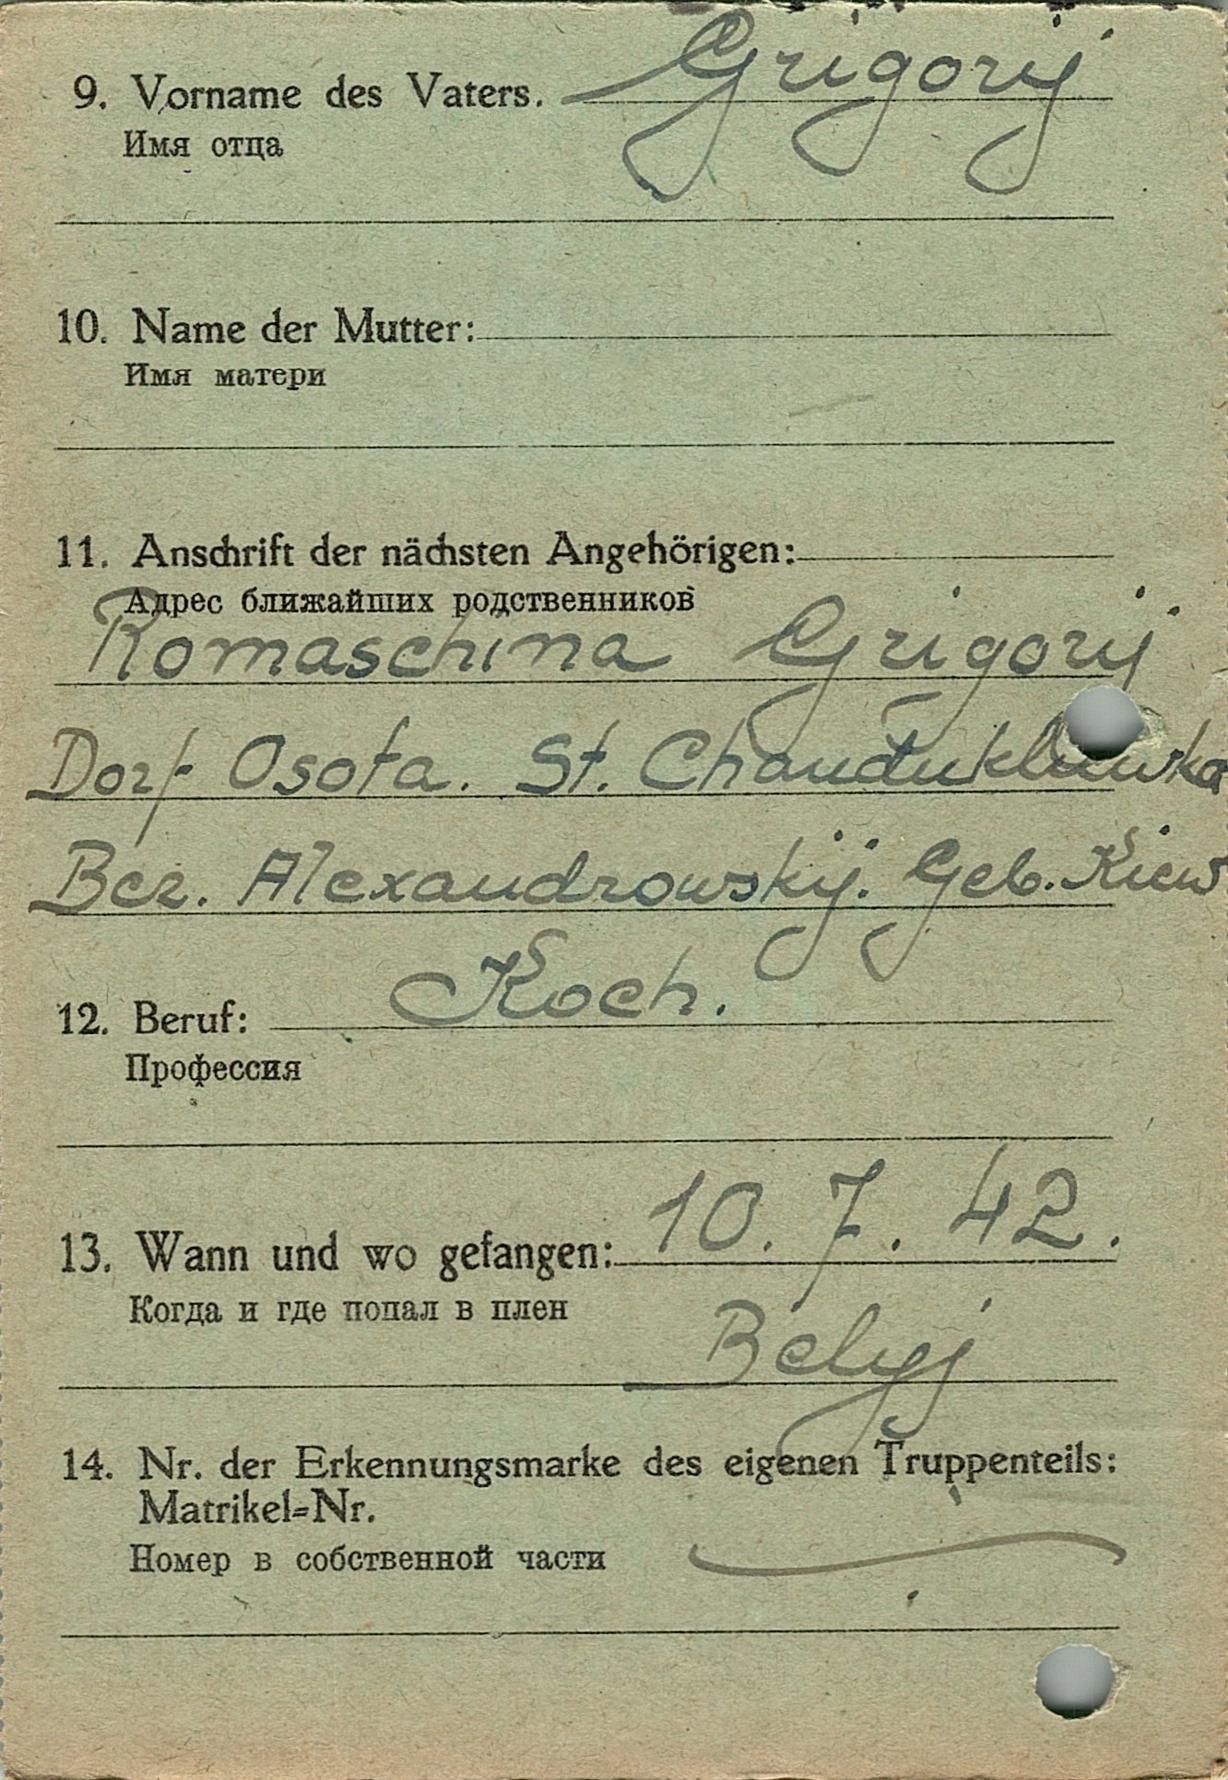 9. Vorname des Vaters. Grigorij
Имя отца
10. Name der Mutter:
Имя матери
11. Anschrift der nächsten Angehörigen:
Адрес ближайших родственников
Romaschina Grigorij
Dorf Osota. St.
Bez. Alexandrowskij. Geb. Kiew
12. Beruf: Koch.
Профессия
13. Wann und wo gefangen: 10. 7. 42.
Когда и где попал в плен
Belyj
14. Nr. der Erkennungsmarke des eigenen Truppenteils:
Matrikel=Nr.
Номер в собственной части